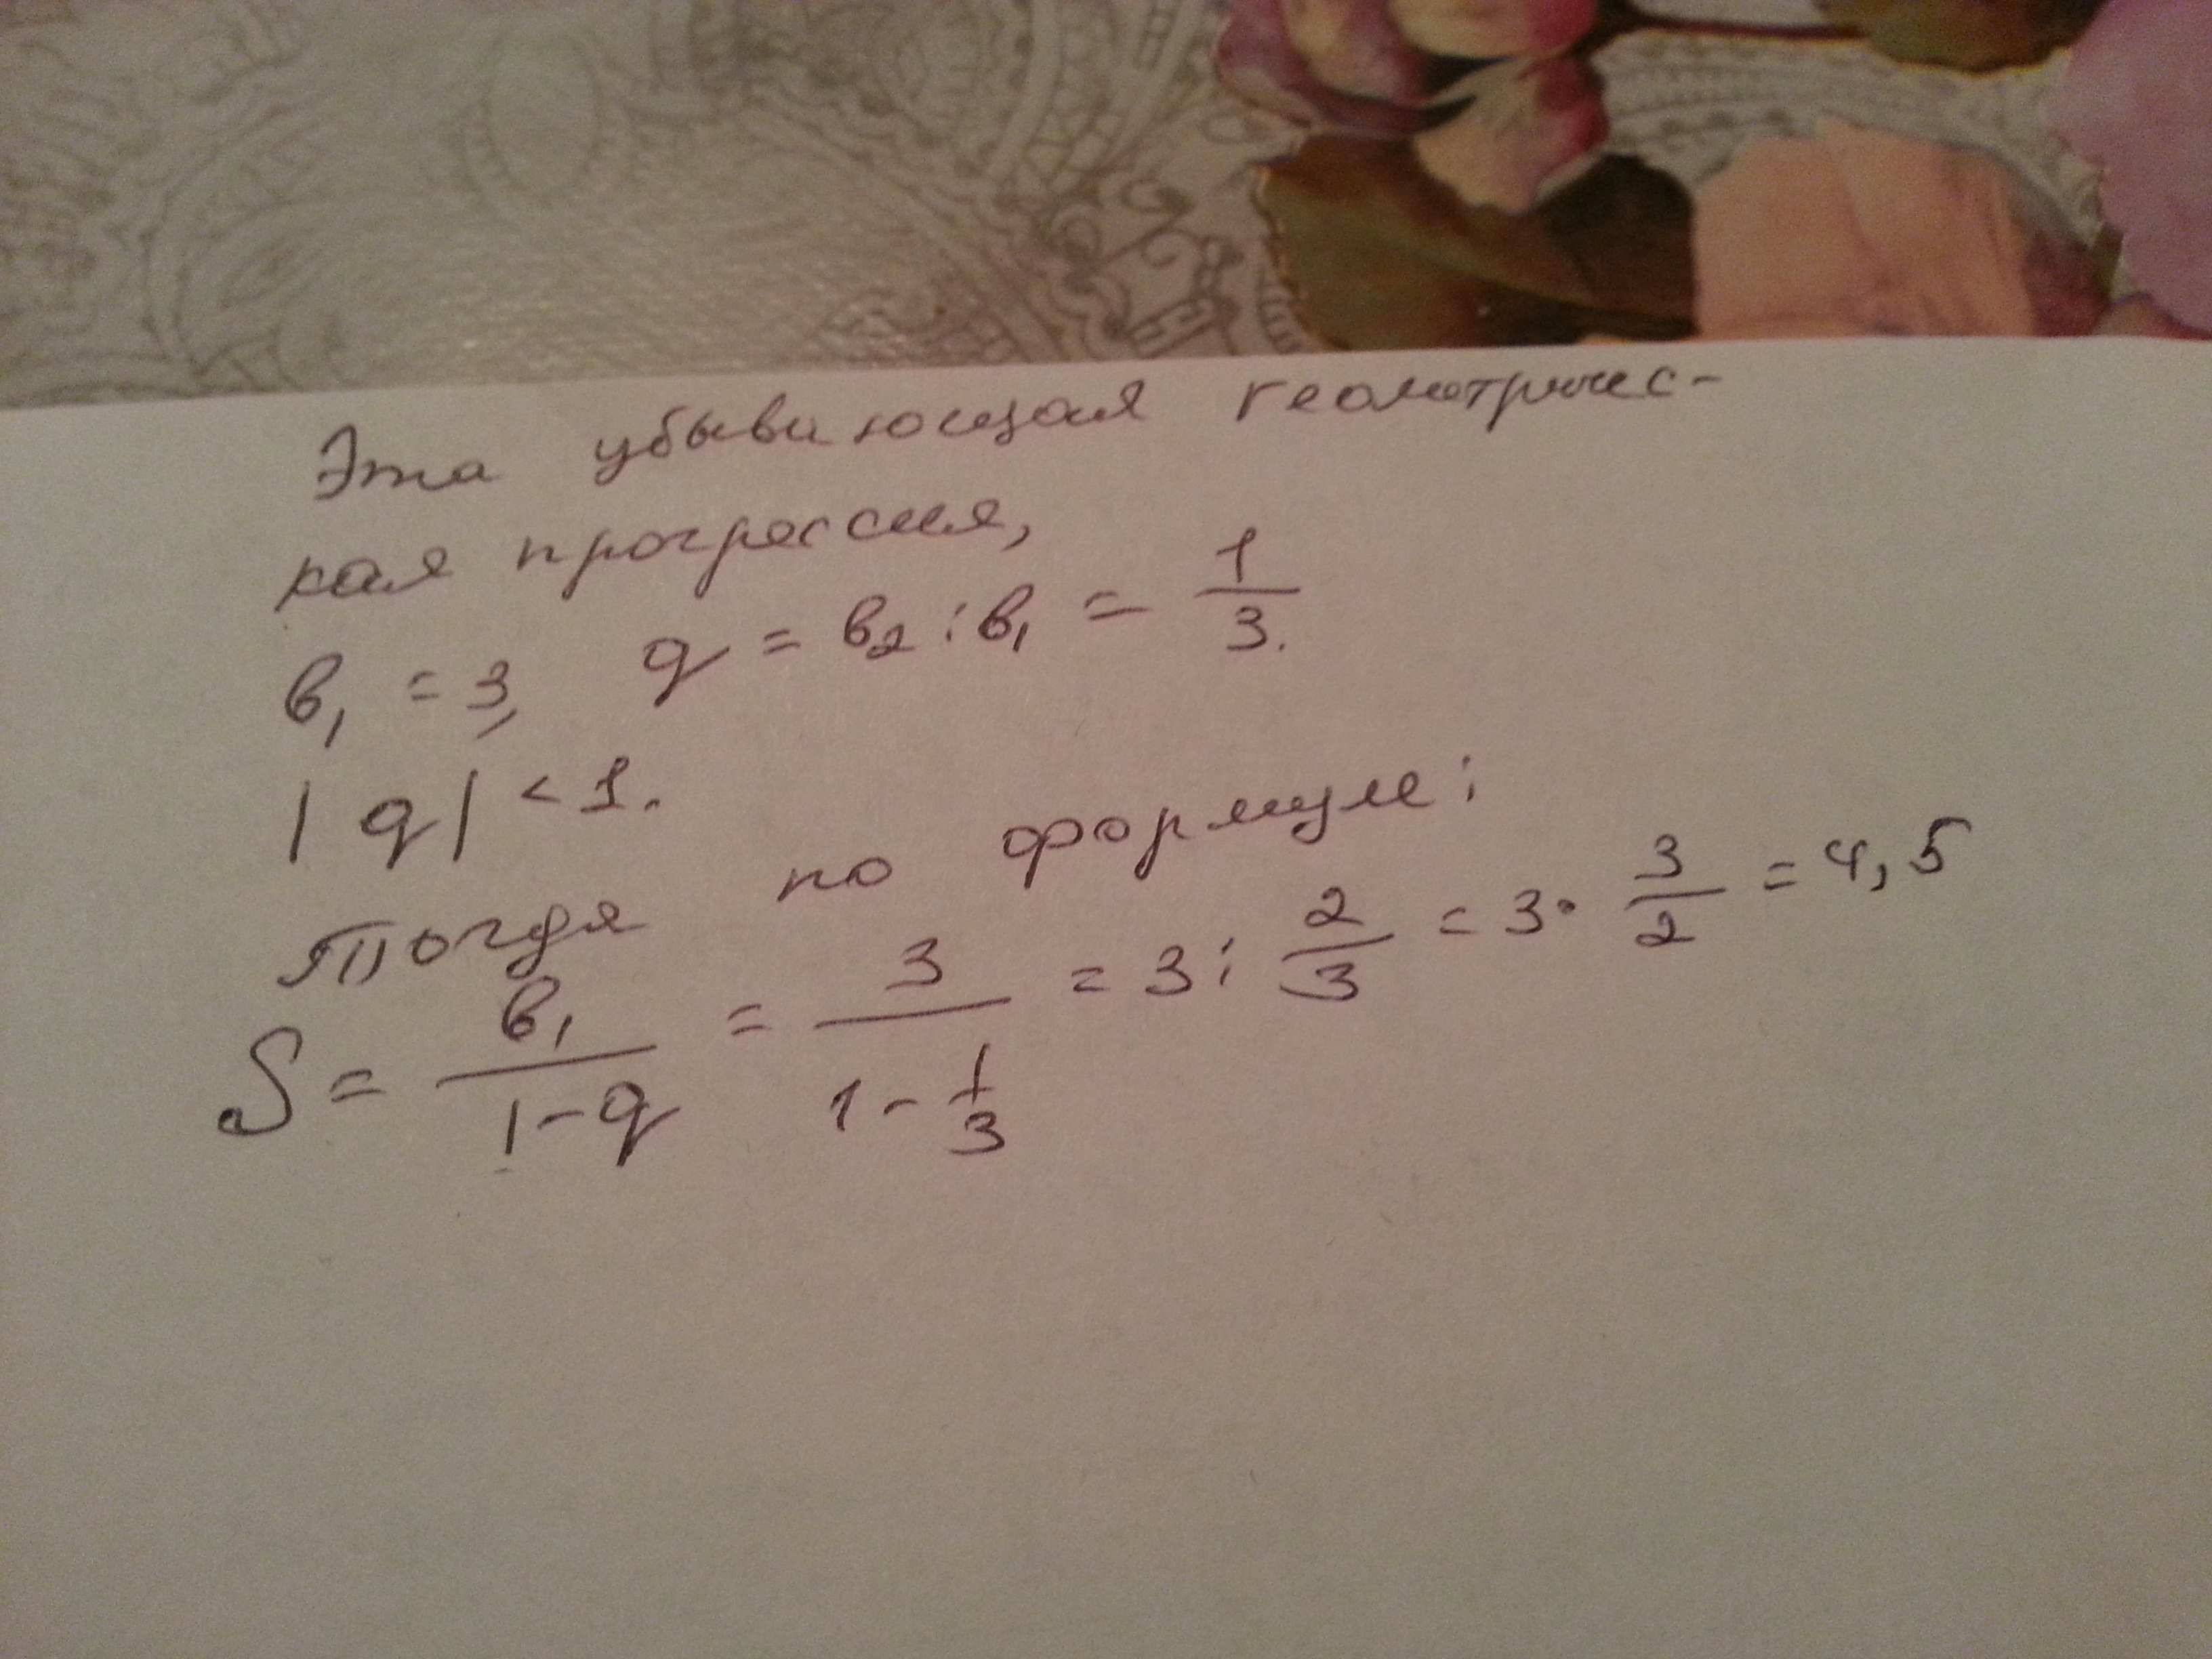 Эта убывающая геометричес-
кая прогрессия,
b₁ = 3, q = b₂ : b₁ = 1/3.
|q| < 1.
Тогда по формуле:
S = b₁/(1-q) = 3/(1 - 1/3) = 3 : 2/3 = 3 · 3/2 = 4,5